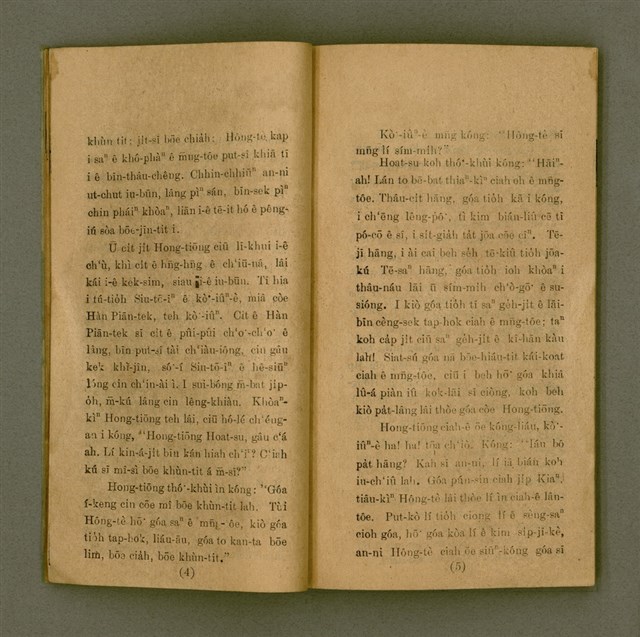 khùn tit; ji̍t-sî bōe chia̍h; Hông-tè kap
i saⁿ ê khó-phàⁿ ê m̄ng-tôe put-sî khiā tī
i ê bīn-thâu-chêng. Chhin-chhiūⁿ an-ni
ut-chut iu-būn, láng pîⁿ sán, bīn-sek pîⁿ
chin pháiⁿ khòaⁿ, liân i-ê tē-it hó ê pêng-
iú sòa bōe-jīn-tit i.
Ū ci̍t ji̍t Hong-tiōng ciū lī-khui i-ê
ch'ù, khì ci̍t ê hn̂g-hn̄g ê ch'iū-nâ, lâi
kái i-ê kek-sim, siau i-ê iu-būn. Tī hia
i tú-tio̍h Siu-tō-îⁿ ê kò͘-iûⁿ-ê, miâ cōe
Hàn Piān-tek, teh kò͘-iûⁿ. Ci̍t ê Hàn
Piān-tek sī ci̍t ê pûi-pûi ch'o͘-ch'o͘ ê
lâng, bīn put-sî ta̍t ch'iàu-iông, cin gâu
ke̍k khì-jîn, só͘-í Sin-tō-îⁿ ê hē-siūⁿ
lóng cin ch'in-ài i. I sui-bóng m̄-bat ji̍p-
o̍h, m̄-kú lâng cin lêng-khiàu. Khòaⁿ-
kìⁿ Hong-tiōng teh lâi, ciū hó-lé ch'éng-
an i kóng, "Hong-tiōng Hoat-su, gâu c'á
ah. Lí kin-á-ji̍t bīn kán hiah ch'iⁿ? C'iah
kú sī mí-sî bōe khùn-tit á m̄-sī?"
Hong-tiōng thó͘-khùi ìn kóng: "Góa
í-keng cin cōe mî bōe khùn-tit lah. Tùi
Hông-tè hō͘ góa saⁿ ê m̄ng-tôe, kiò góa
tio̍h tap-hok, liáu-āu, góa to kan-ta bōe
lim, bōe cia̍h, bōe khùn-tit."
(4)
Kò͘-iûⁿ-ê mn̄g kóng: "Hông-tè sī
mn̄g lí sím-mi̍h?"
Hoat-su koh thó͘-khùi kóng: "Hāiⁿ-
ah! Lán to bē-bat thiaⁿ-kìⁿ ciah oh ê mn̄g-
tôe. Thâu-ci̍t hāng, góa tio̍h kā i kóng,
i ch'ēng lêng-pô͘, tì kim biān-liû cē tī
pó-cō ê sî, i si̍t-giá̍h ta̍t jōa cōe cîⁿ. Tē-
jī hāng, i ài cai beh se̍h tē-kiû tio̍h jōa-
kú. Tē-saⁿ hāng, góa tio̍h ioh khòaⁿ i
thâu-náu lāi ū sím-mi̍h ch'ò-gō͘ ê su-
sióng. I kiò góa tio̍h tī saⁿ ge̍h-ji̍t ê lāi-
bīn cêng-sek tap-hok ciah ê mn̄g-tôe; taⁿ
koh ca̍p ji̍t ciū saⁿ ge̍h-ji̍t ê kî-hān kàu
lah! Siat-sú góa nā bōe-hiáu-tit kái-koat
ciah ê mn̄g-tôe, ciū i beh hō͘ góa khiâ
lû-á piàn iû kok-lāi sì ciòng, koh beh
kiò pa̍t-lâng lâi thòe góa cōe Hong-tiōng.
Hong-tiōng ciah-ê ōe kóng-liáu, kò͘-
iûⁿ-ê ha! ha! tōa ch'iò. Kóng: "Iáu bô
pa̍t hāng? Kah sī an-ni, lí iā bián ko͘h
iu-ch'iû lah. Góa pún-sin ciah ji̍p Kiaⁿ,
tiâu-kìⁿ Hông-tè lâi thòe lí ìn ciah-ê lân-
tôe. Put-kò lí tio̍h ciong lí ê sèng-saⁿ
cioh góa, hō͘ góa kòa lí ê kim si̍p-jī-kè,
an-ni Hông-tè ciah ōe siūⁿ-kóng góa sī
(5)